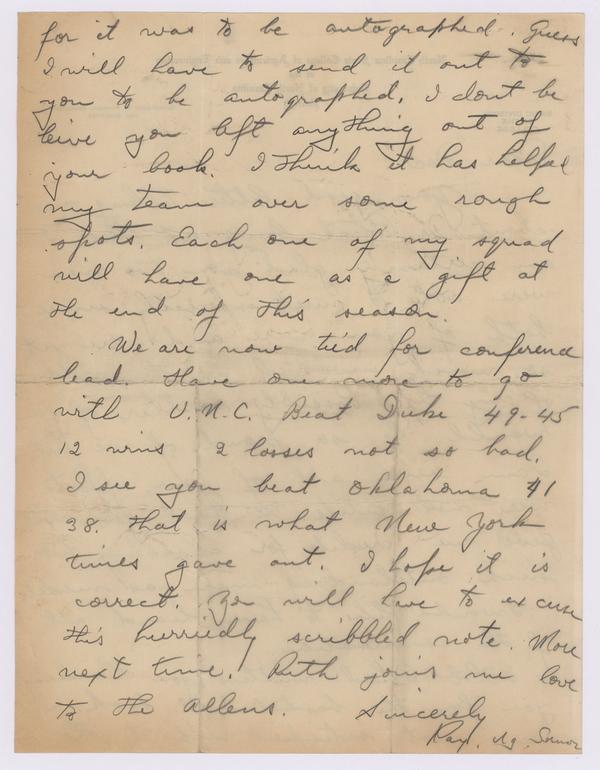 for it was to be autographed. Guess
I will have to send it out to
you to be autographed. I dont be
leive you left anything out of
your book. I think it has helped
my team over some rough
spots. Each one of my squad
will have one as a gift at
the end of this season.
We are now tied for conference
lead. Have one more to go
with U.N.C. Beat Duke 49-45
12 wins 2 losses not so bad.
I see you beat Oklahoma 41
38. that is what New York
times gave out. I hope it is
correct. You will have to excuse
this hurriedly scribbled note. More
next time. Ruth joins me love
to the Allens. Sincerely
Ray.